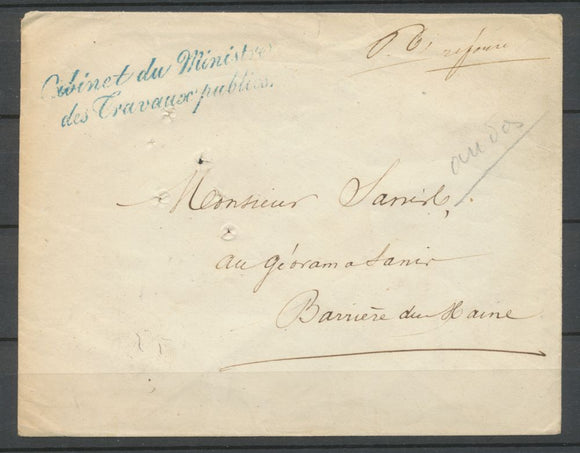 Cabinet du Ministre
des Travaux publics.
réponse
au dos
Monsieur Sanis,
au Géorama Sanis
Barrière du Maine